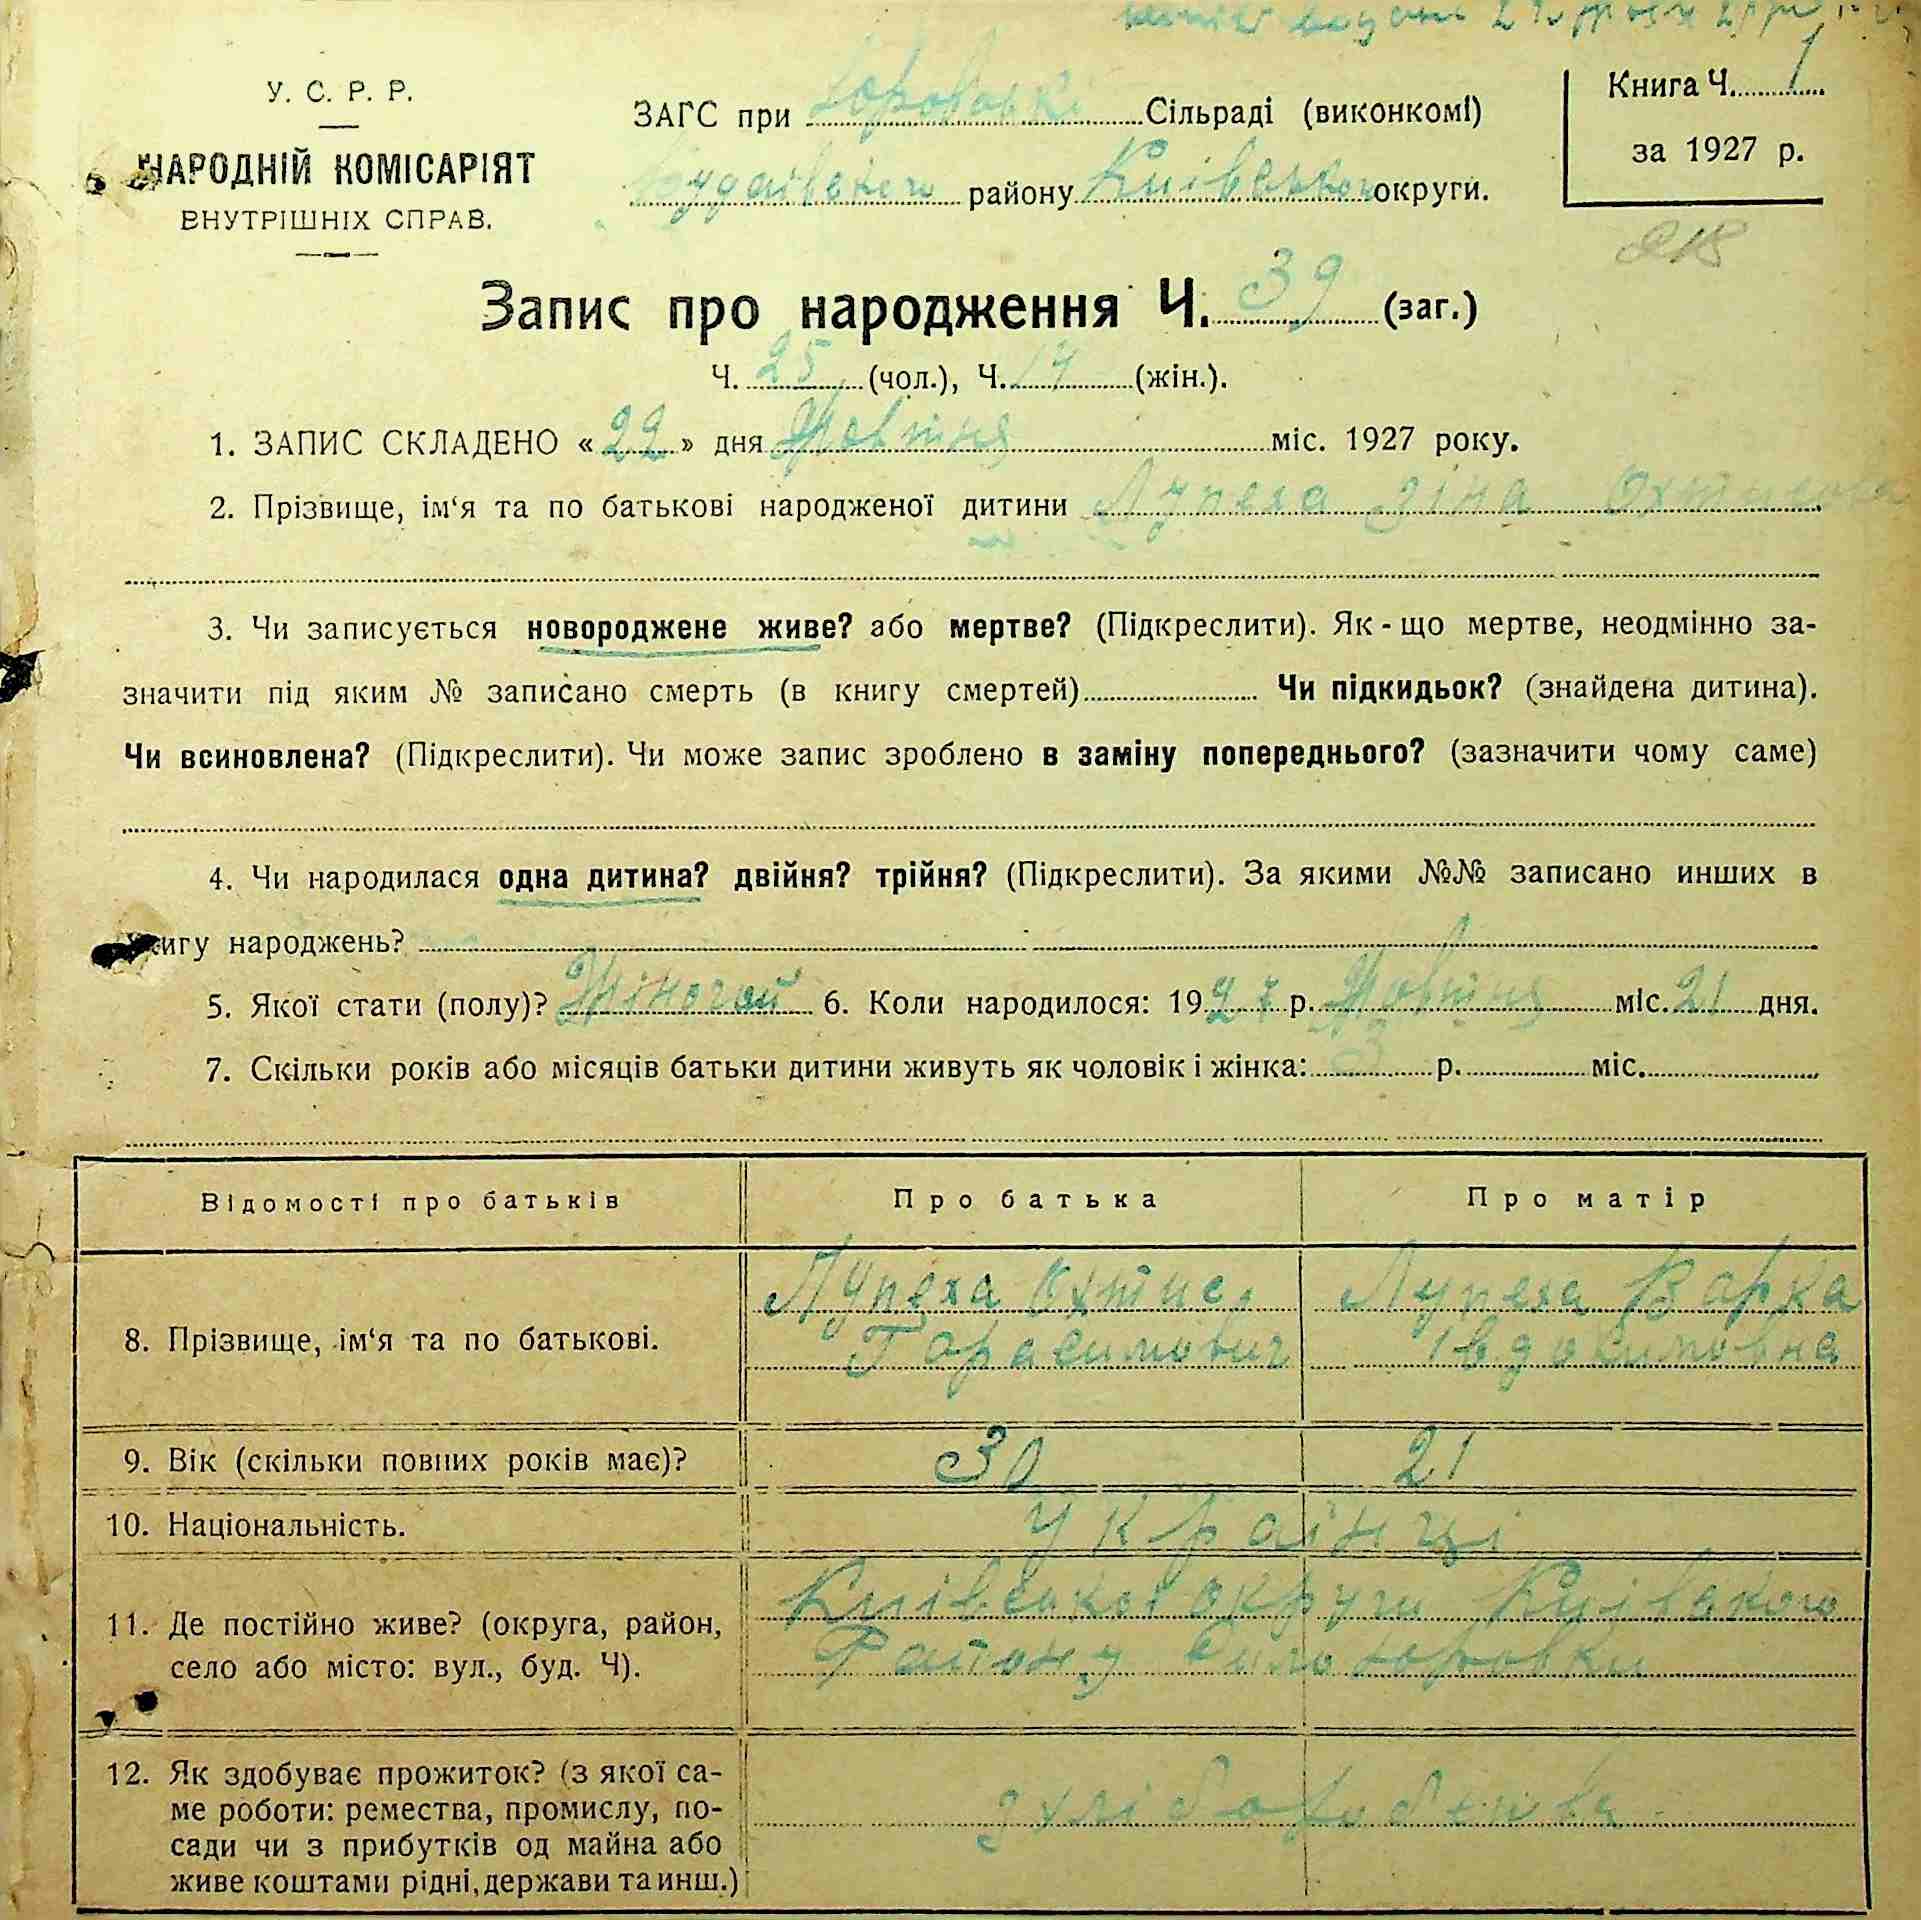 У. С. Р. Р.
НАРОДНІЙ КОМІСАРІЯТ
ВНУТРІШНІХ СПРАВ.
ЗАГС при Юровській Сільраді (виконкомі)
Будаївського району Київської округи.
Книга Ч. 1
за 1927 р.
218
Запис про народження Ч. 39 (заг.)
Ч. 25 (чол.), Ч. 14 (жін.).
1. ЗАПИС СКЛАДЕНО «22» дня Жовтня міс. 1927 року.
2. Прізвище, ім‘я та по батькові народженої дитини Лупеха Зіна
3. Чи записується новороджене живе? або мертве? (Підкреслити). Як-що мертве, неодмінно за-
значити під яким № записано смерть (в книгу смертей) Чи підкидьок? (знайдена дитина).
Чи всиновлена? (Підкреслити). Чи може запис зроблено в заміну попереднього? (зазначити чому саме)
4. Чи народилася одна дитина? двійня? трійня? (Підкреслити). За якими №№ записано инших в
книгу народжень?
5. Якої стати (полу)? Жіночой 6. Коли народилося: 1927 р. Жовтня міс. 21 дня.
7. Скільки років або місяців батьки дитини живуть як чоловік і жінка: 3 р. міс.
Відомості про батьків
Про батька
Про матір
8. Прізвище, ім‘я та по батькові.
Лупеха Охтис.
Гарасимович
Лупеха Варка
Івдокимовна
9. Вік (скільки повних років має)?
30
21
10. Національність.
Українці
11. Де постійно живе? (округа, район,
село або місто: вул., буд. Ч).
Київської округи Київского
Району Село Юровки
12. Як здобуває прожиток? (з якої са-
ме роботи: ремества, промислу, по-
сади чи з прибутків од майна або
живе коштами рідні, держави та инш.)
зхліборобства